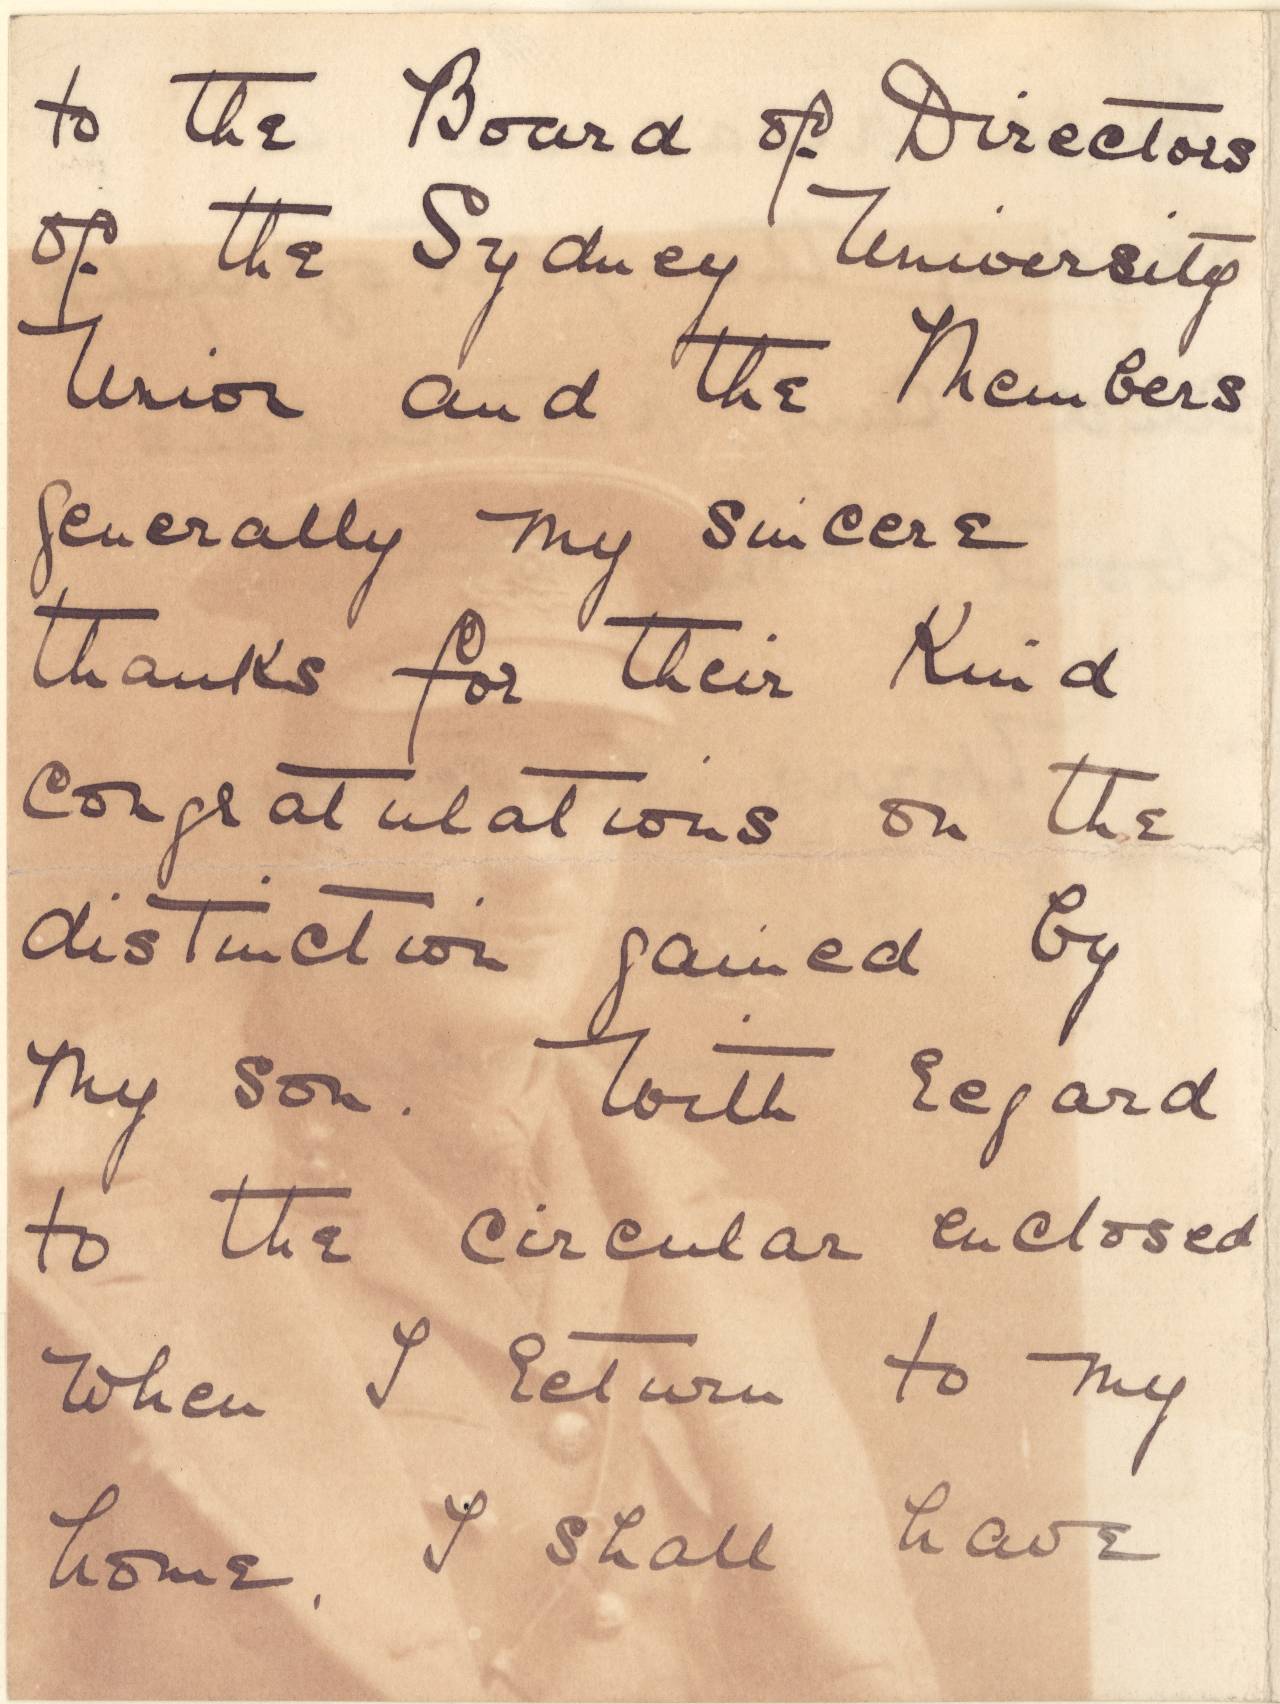 to the Board of Directors
of the Sydney University
Union and the Members
generally my sincere
thanks for their Kind
congratulations on the
distinction gained by
my son. With regard
to the circular enclosed
when I return to my
home, I shall have